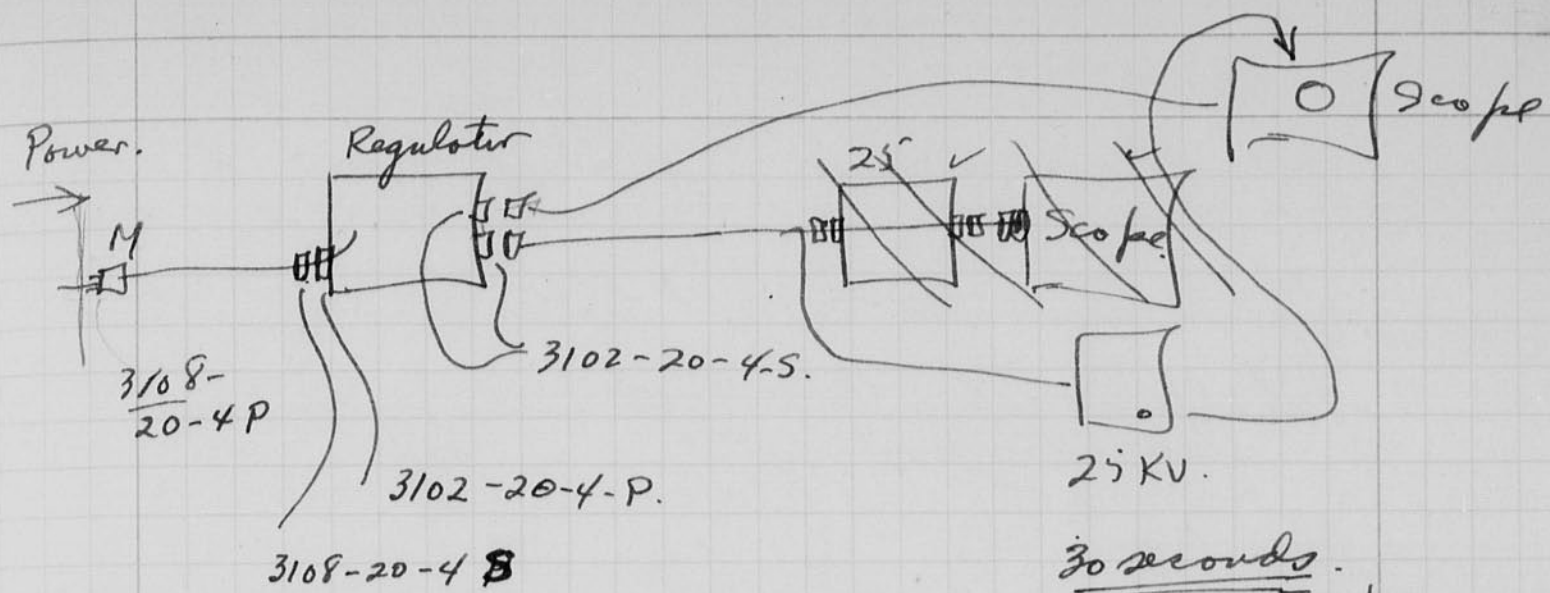 Power.
Regulator
Scope
25 ✓
Scope
M
3108-
20-4 P
3102-20-4-S.
3102-20-4-P.
3108-20-4 S
25 KV.
30 seconds.